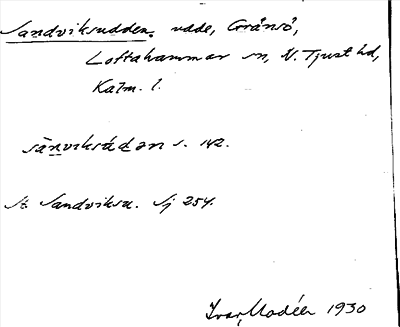 Sandviksudden, udde, Grånsö,
Loftahammar sn, N. Tjust hd,
Kalm. l.
sànviksúdən s. 142.
St. Sandviksu. Sj 254.
Ivar Modéer 1930